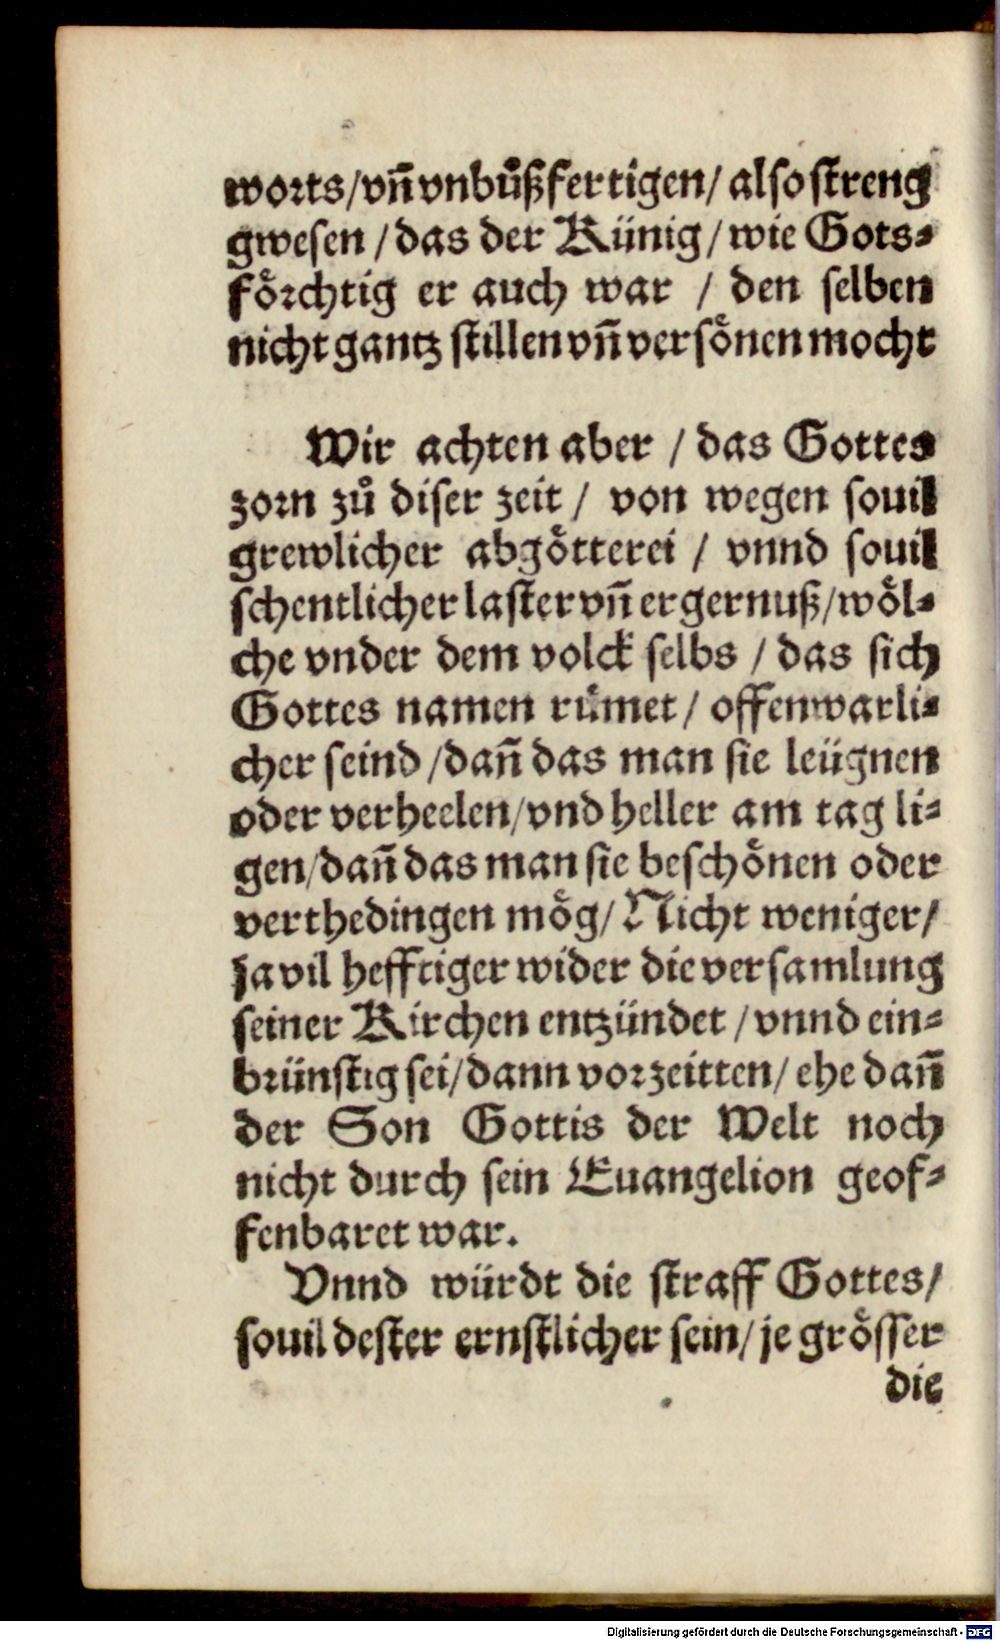 worts/vñ vnbůßfertigen/ also streng
gwesen /das der Künig/wie Gots⸗
förchtig er auch war / den selben
nicht gantz stillen vñ versönen mocht
Wir achten aber / das Gottes
zorn zů diser zeit / von wegen souil
grewlicher abgötterei / vnnd souil
schentlicher laster vñ ergernuß/wöl⸗
che vnder dem volck selbs / das sich
Gottes namen rümet/ offenwarli⸗
cher seind /dañ das man sie leügnen
oder verheelen/vnd heller am tag li⸗
gen/dañ das man sie beschönen oder
verthedingen mög/ Nicht weniger/
Ja vil hefftiger wider die versamlung
seiner Kirchen entzündet /vnnd ein⸗
brünstig sei/dann vorzeitten/ ehe dañ
der Son Gottis der Welt noch
nicht durch sein Euangelion geof⸗
fenbaret war.
Vnnd würdt die straff Gottes/
souil dester ernstlicher sein/ je grösser
die
Digitalisierung gefördert durch die Deutsche Forschungsgemeinschaft - DFG